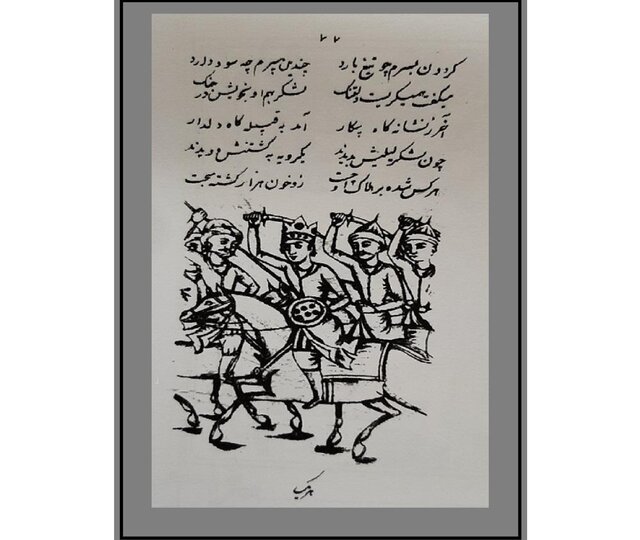 ۷۷
گردون بسرم چو تیغ بارد چندین سپرم چه سود دارد
میگفت همیگریست دلتنگ لشکر بهم او بخویش در جنگ
آخر ز نشانه گاه پیکار آمد به قبیله گاه دلدار
چون لشکر لیلیش بدیدند یکرویه به کشتنش دویدند
هرکس شده بر هلاک او چست زو خون هزار کشته میجست
هر یک